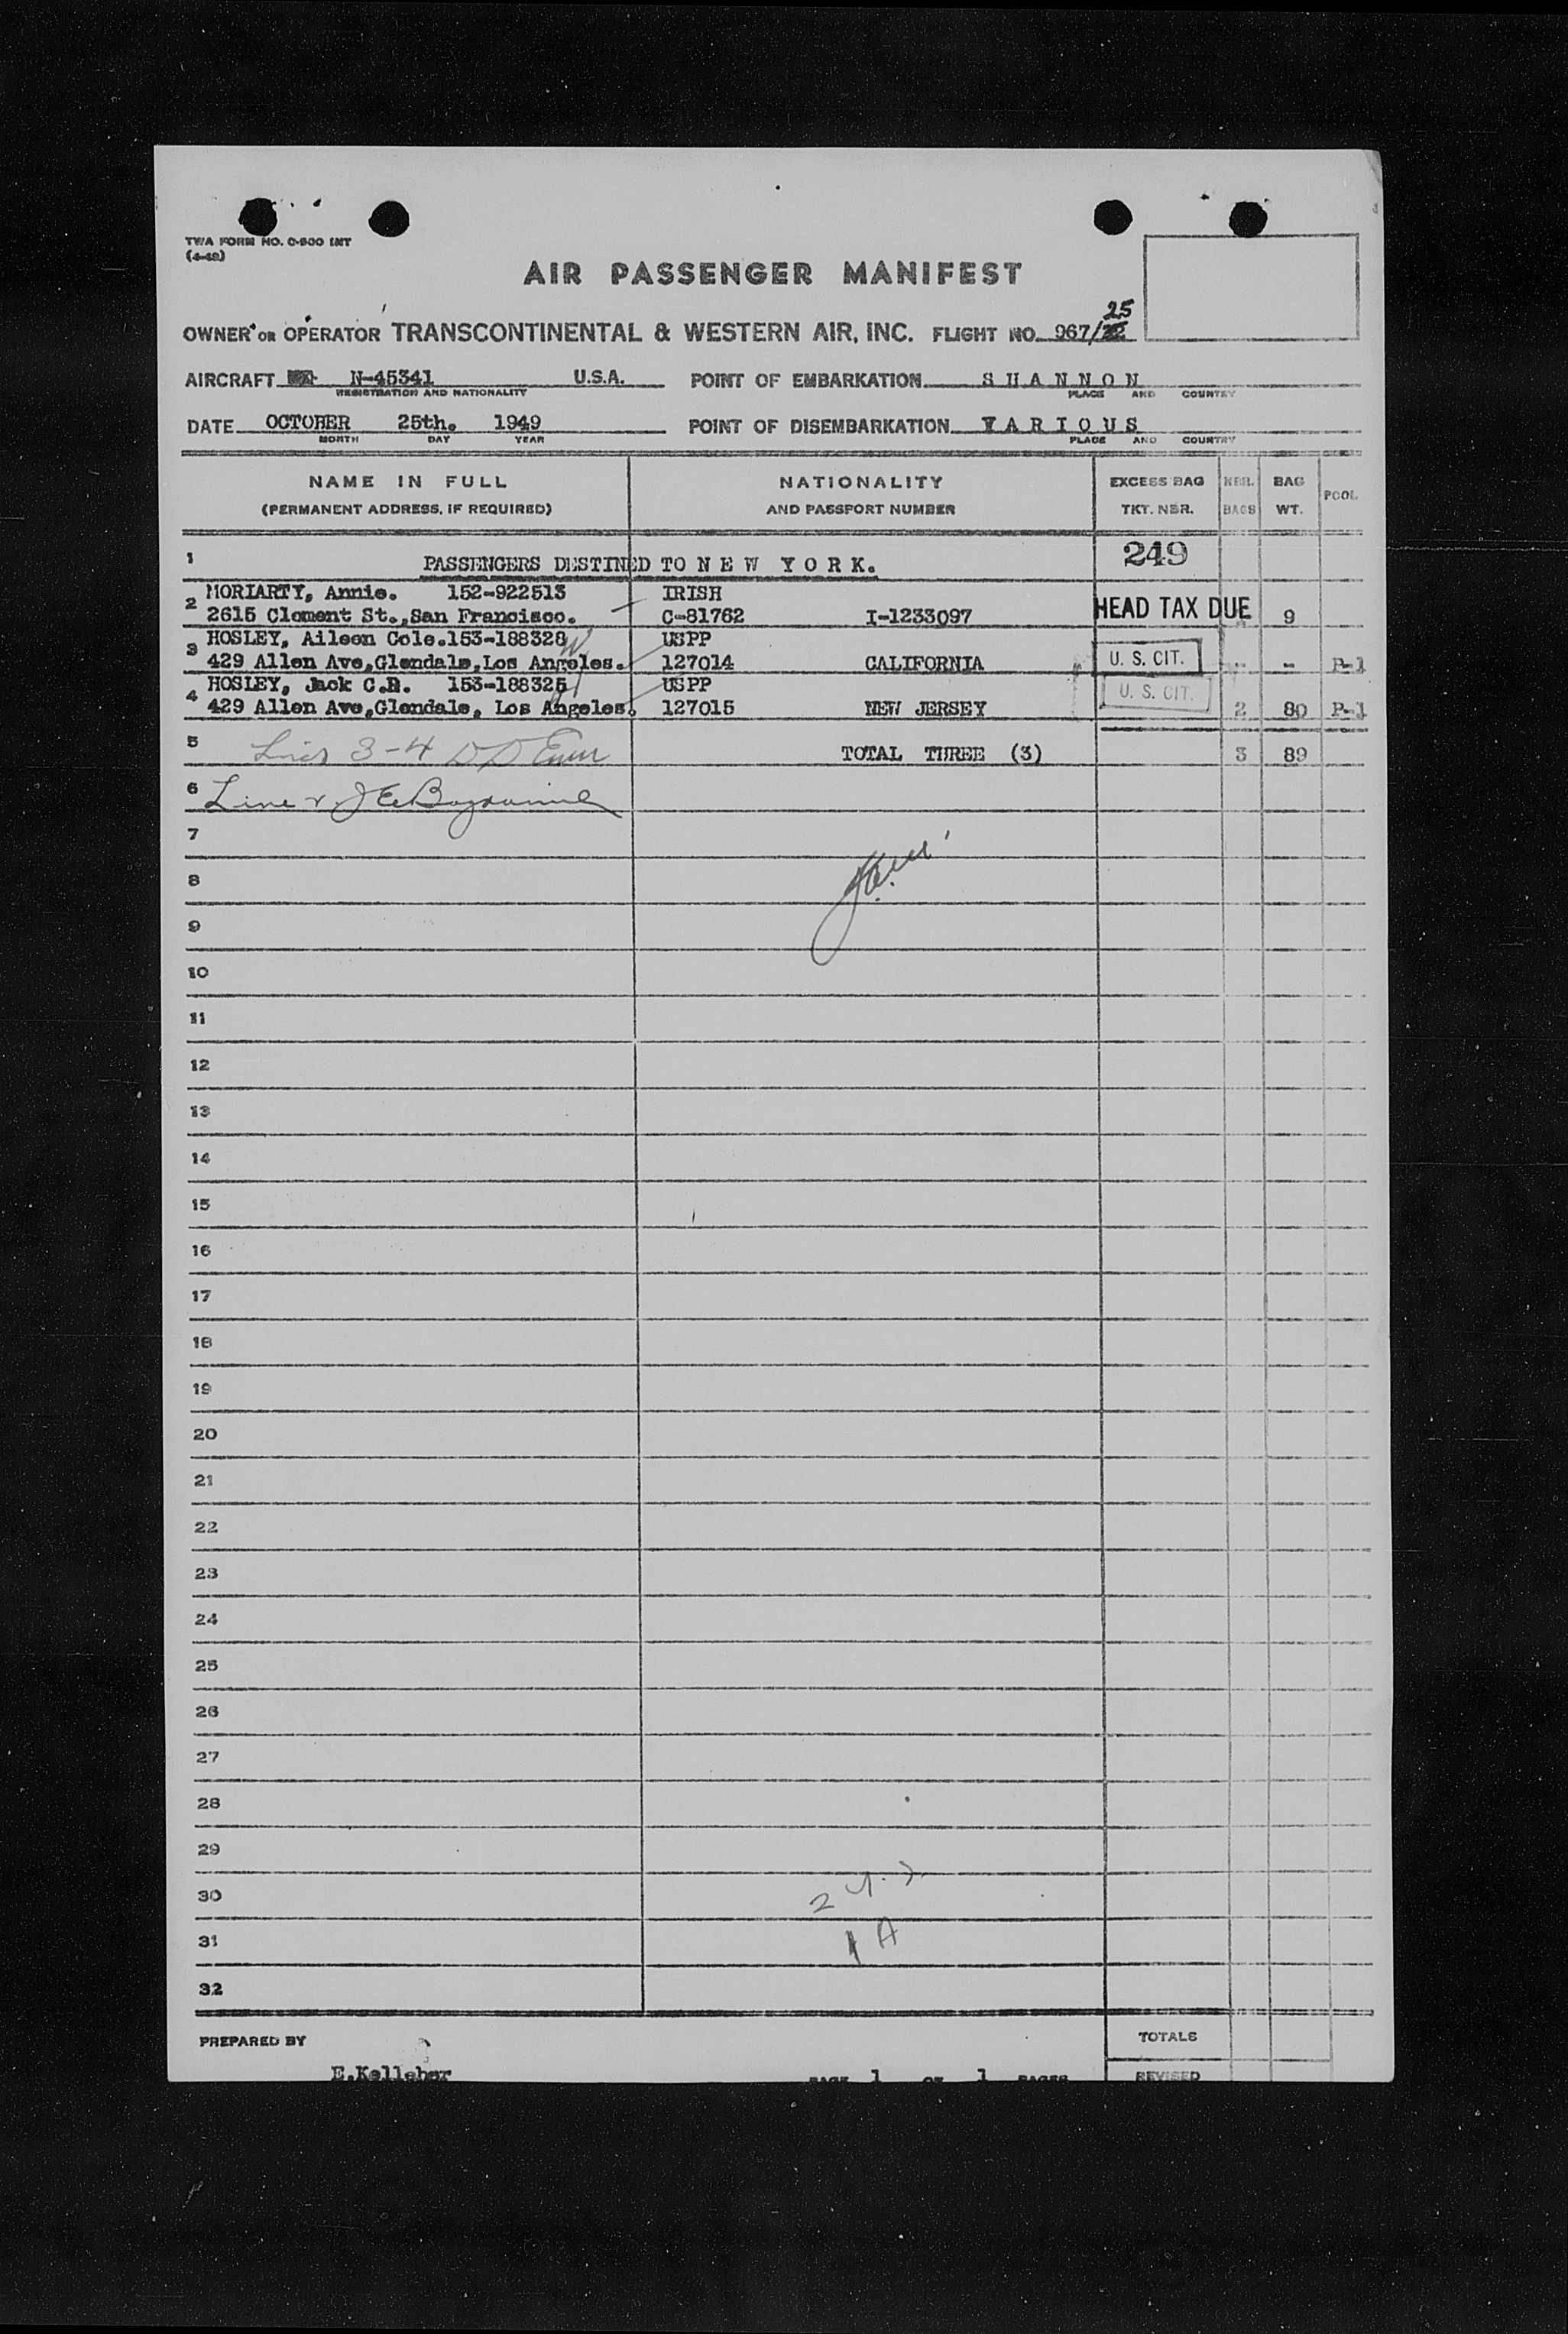 TWA FORM NO. C-500 INT
(4-48)
AIR PASSENGER MANIFEST
25
OWNER OR OPERATOR TRANSCONTINENTAL & WESTERN AIR, INC. FLIGHT NO. 967/
AIRCRAFT N-45341 U.S.A. POINT OF EMBARKATION S H A N N O N
REGISTRATION AND NATIONALITY PLACE AND COUNTRY
DATE OCTOBER 25th. 1949 POINT OF DISEMBARKATION V A R I O U S
MONTH DAY YEAR PLACE AND COUNTRY
NAME IN FULL NATIONALITY EXCESS BAG NBR. BAG POOL
(PERMANENT ADDRESS, IF REQUIRED) AND PASSPORT NUMBER TKT. NBR. BAGS WT.
1 PASSENGERS DESTINED TO N E W Y O R K. 249
MORIARTY, Annie. 152-922513 IRISH
2 2615 Clement St.,San Francisco. C-81762 I-1233097 HEAD TAX DUE 9
HOSLEY, Aileen Cole.153-188328 USPP
3 429 Allen Ave,Glendale,Los Angeles. 127014 CALIFORNIA U. S. CIT. - - P-1
HOSLEY, Jack C.R. 153-188325 USPP
4 429 Allen Ave,Glendale, Los Angeles. 127015 NEW JERSEY U. S. CIT. 2 80 P-1
5 Lines 3-4 TOTAL THREE (3) 3 89
6 Line
7
8
9
10
11
12
13
14
15
16
17
18
19
20
21
22
23
24
25
26
27
28
29
30 2
31 1 A
32
PREPARED BY TOTALS
E.Kelleher PAGE 1 OF 1 PAGES REVISED